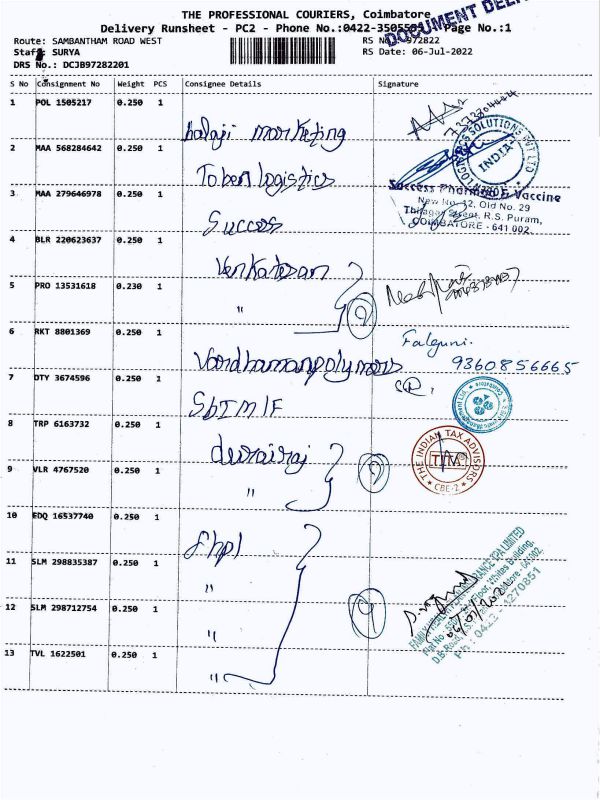 THE PROFESSIONAL COURIERS, Coimbatore
Delivery Runsheet - PC2 - Phone No.:0422-3505 Page No.:1
DOCUMENT DEL
Route: SAMBANTHAM ROAD WEST RS No 972822
Staff: SURYA RS Date: 06-Jul-2022
DRS No.: DCJB97282201
S No Consignment No Weight PCS Consignee Details Signature
1 POL 1505217 0.250 1 balaji marketing
7373904444
SOLUTIONS PVT LTD
INDIA
2 MAA 568284642 0.250 1 Toben logistics
Success Pharma & Vaccine
New No. 12, Old No. 29
Street, R.S. Puram,
COIMBATORE - 641 002.
3 MAA 279646978 0.250 1 Success
4 BLR 220623637 0.250 1 Venkatesan
5 PRO 13531618 0.230 1 "
6 RKT 8801369 0.250 1 Vardhamanpolymers
Falguni.
9360856665
7 DTY 3674596 0.250 1 SbIMIF
8 TRP 6163732 0.250 1 durairaj
THE INDIAN TAX ADVISORS
CBE-2
9 VLR 4767520 0.250 1 "
10 EDQ 16537740 0.250 1 fhpl
11 SLM 298835387 0.250 1 "
12 SLM 298712754 0.250 1 "
13 TVL 1622501 0.250 1 "
FAMILY HEALTH PLAN INSURANCE TPA LIMITED